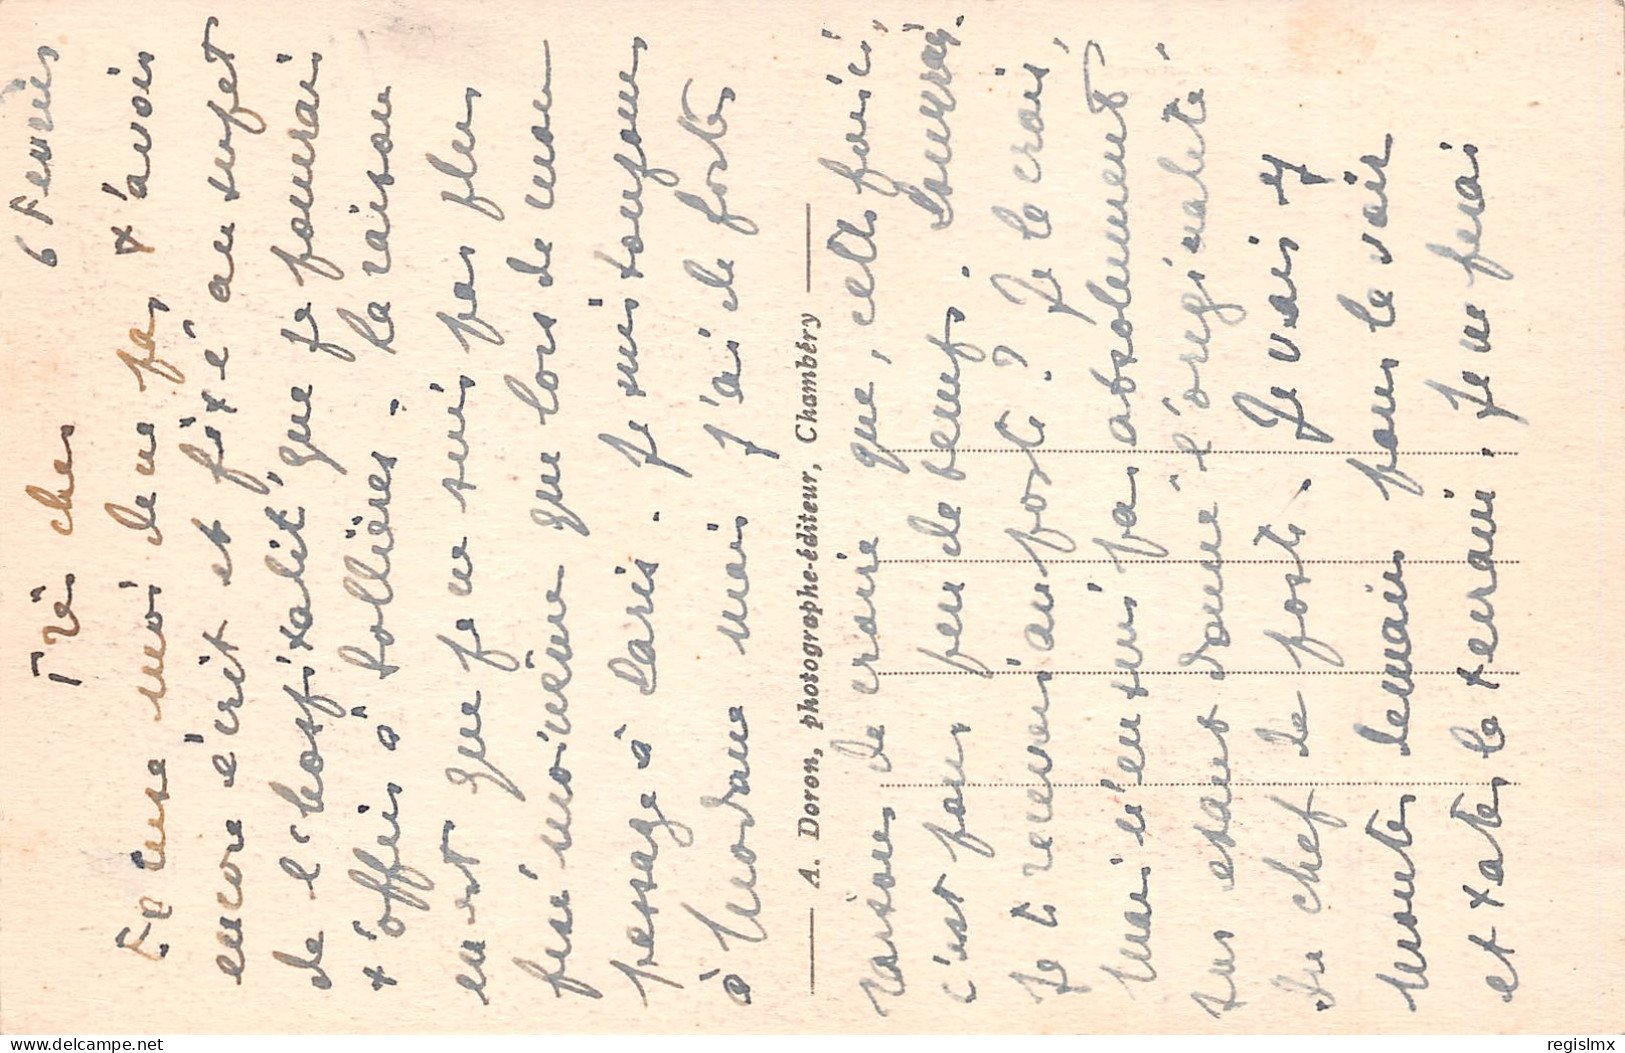 6 Fevrier
Très cher
Excuse moi de ne pas t'avoir
encore écrit et fixé au sujet
de l'hospitalité, que je pourrai
t'offrir à Sollières. La raison
en est que je ne suis pas plus
fixé moi même que lors de mon
passage à Paris. Je suis toujours
à Modane mais j'ai de fortes
A. Doron, photographe-éditeur, Chambéry
raisons de croire que, cette fois ci,
c'est pour peu de temps.
Je t recevrai au poste? Je le crois,
mais n'en suis pas absolument
sur étant donné l'originalité
du chef de poste. Je vais y
monter demain pour le voir
et tater le terrain. Je ne ferai
regislmx
Delcampe.net